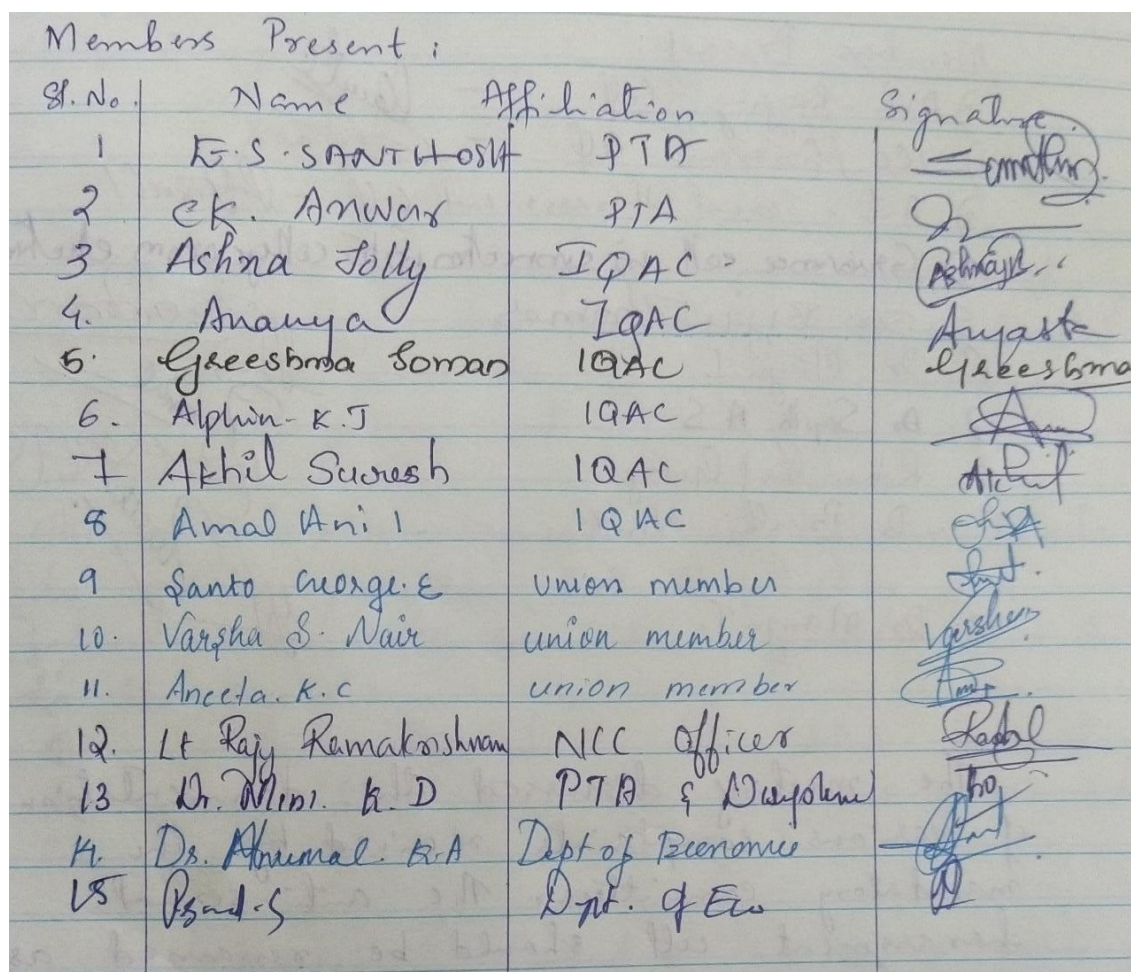 Members Present :
Sl. No. Name Affiliation Signature
1 E.S. SANTHOSH PTA
2 CK. Anwar PTA
3 Ashna Jolly IQAC
4. Ananya IQAC
5. Greeshma Soman IQAC Greeshma
6. Alphin K.J IQAC
7 Akhil Suresh IQAC Akhil
8 Amal Anil IQAC
9 Santo George. E union member
10. Varsha S. Nair union member Varsha
11. Aneeta. K.C union member
12. Lt Raju Ramakrishnan NCC Officer
13 Dr. Mini. K. D PTA &
14. Dr. K.A Dept of Economic
15 Dept. of Eco